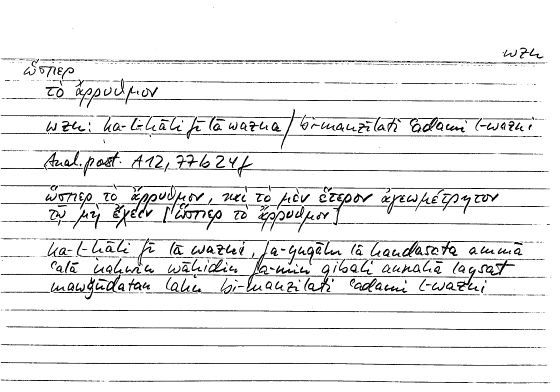 wzn
ὥσπερ
τὸ ἄρρυθμον
wzn: ka-l-ḥāli fī lā wazna / bi-manzilati ʿadami l-wazni
Anal. post. A 12, 77b24f
ὥσπερ τὸ ἄρρυθμον, καὶ τὸ μὲν ἕτερον ἀγεωμέτρητον
τῷ μὴ ἔχειν [ὥσπερ τὸ ἄρρυθμον]
ka-l-ḥāli fī lā wazni, fa-yuqālu lā handasata ammā
ʿalā naḥwin wāḥidin fa-min qibali annahā laysat
mawǧūdatan lahu bi-manzilati ʿadami l-wazni